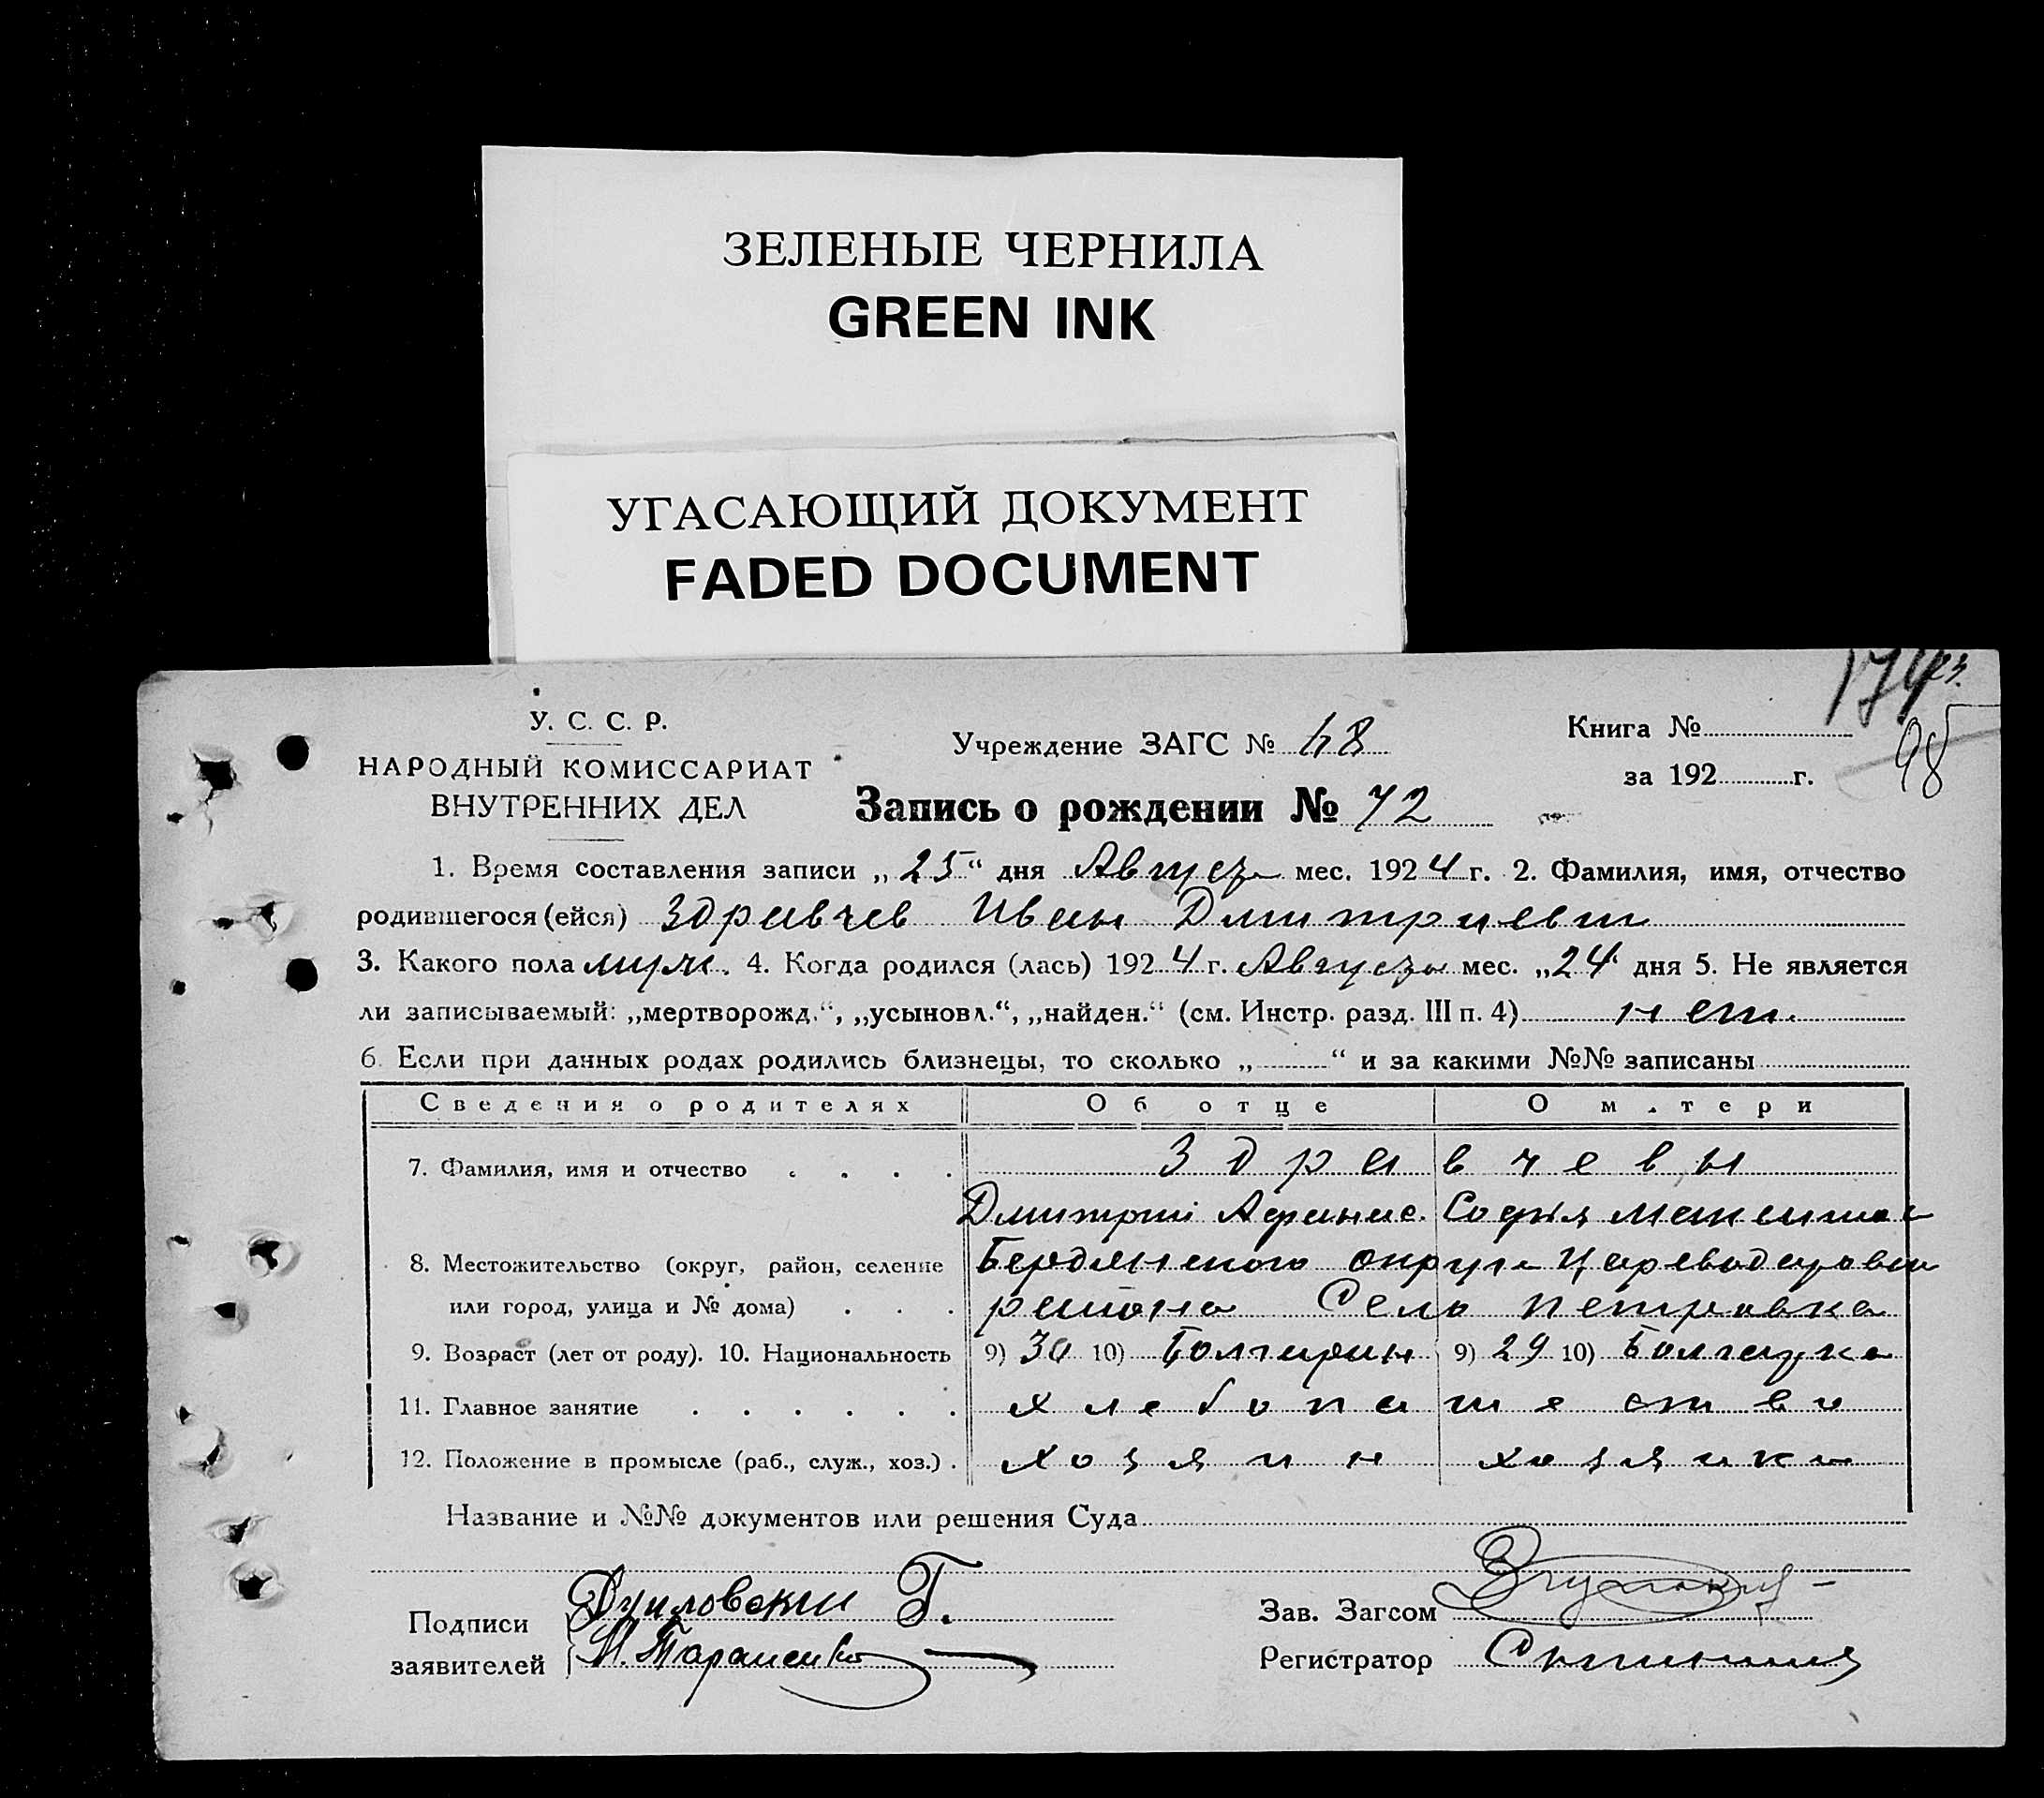 ЗЕЛЕНЫЕ ЧЕРНИЛА
GREEN INK
УГАСАЮЩИЙ ДОКУМЕНТ
FADED DOCUMENT
У. С. С. Р.
НАРОДНЫЙ КОМИССАРИАТ
ВНУТРЕННИХ ДЕЛ
Учреждение ЗАГС № 48
Запись о рождении № 72
Книга №
за 192 г.
98
1. Время составления записи „25“ дня Августа мес. 1924 г. 2. Фамилия, имя, отчество
родившегося (ейся) Здравчев Иван Дмитриевич
3. Какого пола муж. 4. Когда родился (лась) 1924 г. Августа мес. „24“ дня 5. Не является
ли записываемый: „мертворожд.“, „усыновл.“, „найден.“ (см. Инстр. разд. III п. 4) нет.
6. Если при данных родах родились близнецы, то сколько „ “ и за какими №№ записаны
Сведения о родителях Об отце О матери
7. Фамилия, имя и отчество . . . . Здравчевы
Дмитрий Афанас. Софья Максимов
8. Местожительство (округ, район, селение Бердянского округа Цареводаровска
или город, улица и № дома) . . . района Село Петровка
9. Возраст (лет от роду). 10. Национальность 9) 30 10) Болгарин 9) 29 10) Болгарка
11. Главное занятие . . . . . . хлебопашество
12. Положение в промысле (раб., служ., хоз.) . хозяин хозяйка
Название и №№ документов или решения Суда
Подписи
заявителей
Г.
М. Тараненко
Зав. Загсом
Регистратор